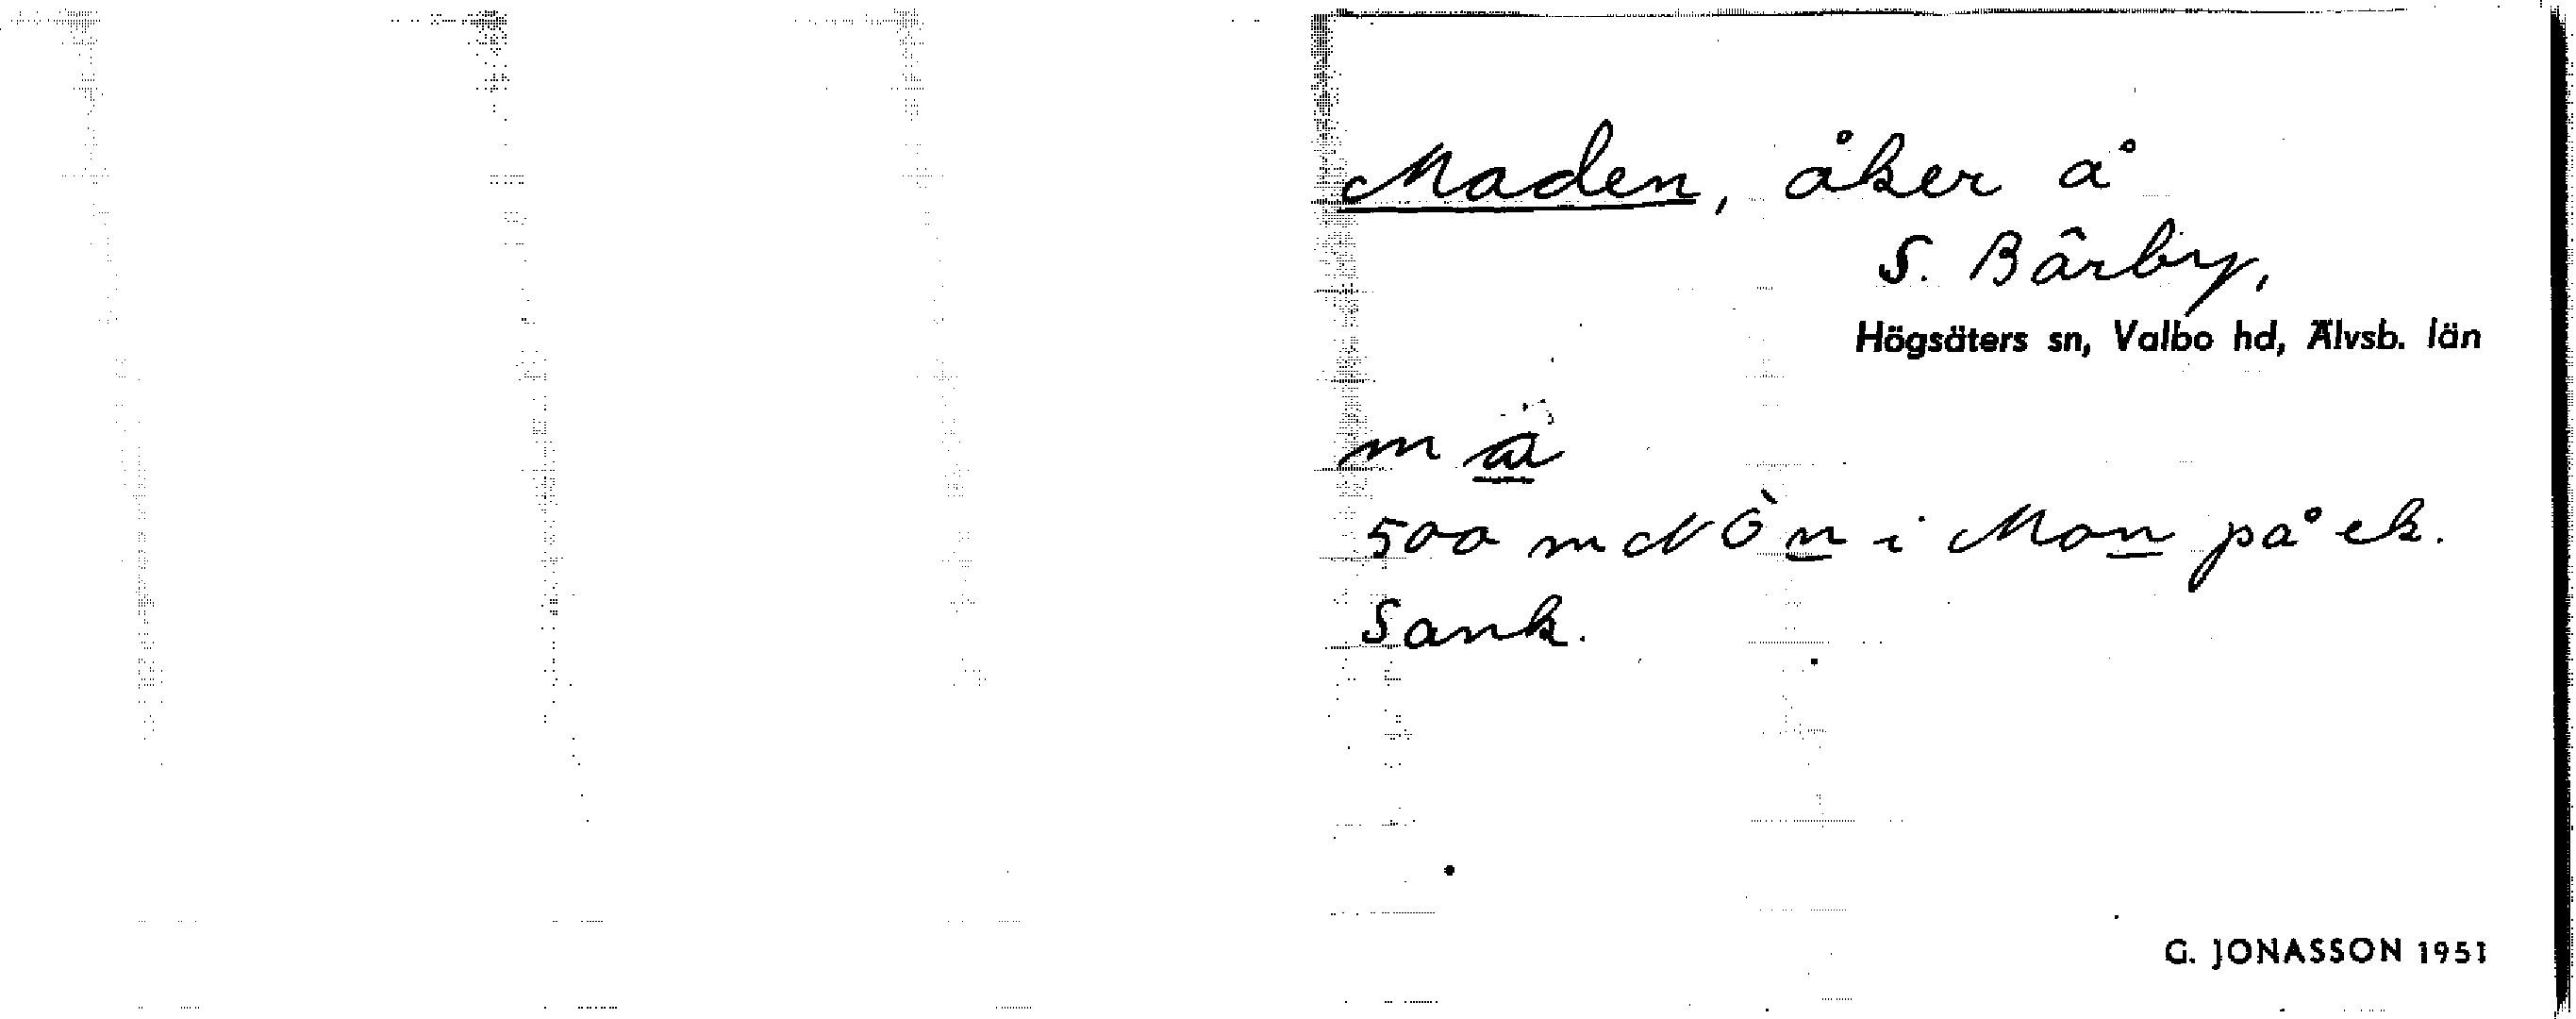 Maden, åker å
S. Bârby,
Högsäters sn, Valbo hd, Älvsb. län
m ä
500 m N Ö n i Mon på ek.
Sank.
G. JONASSON 1951